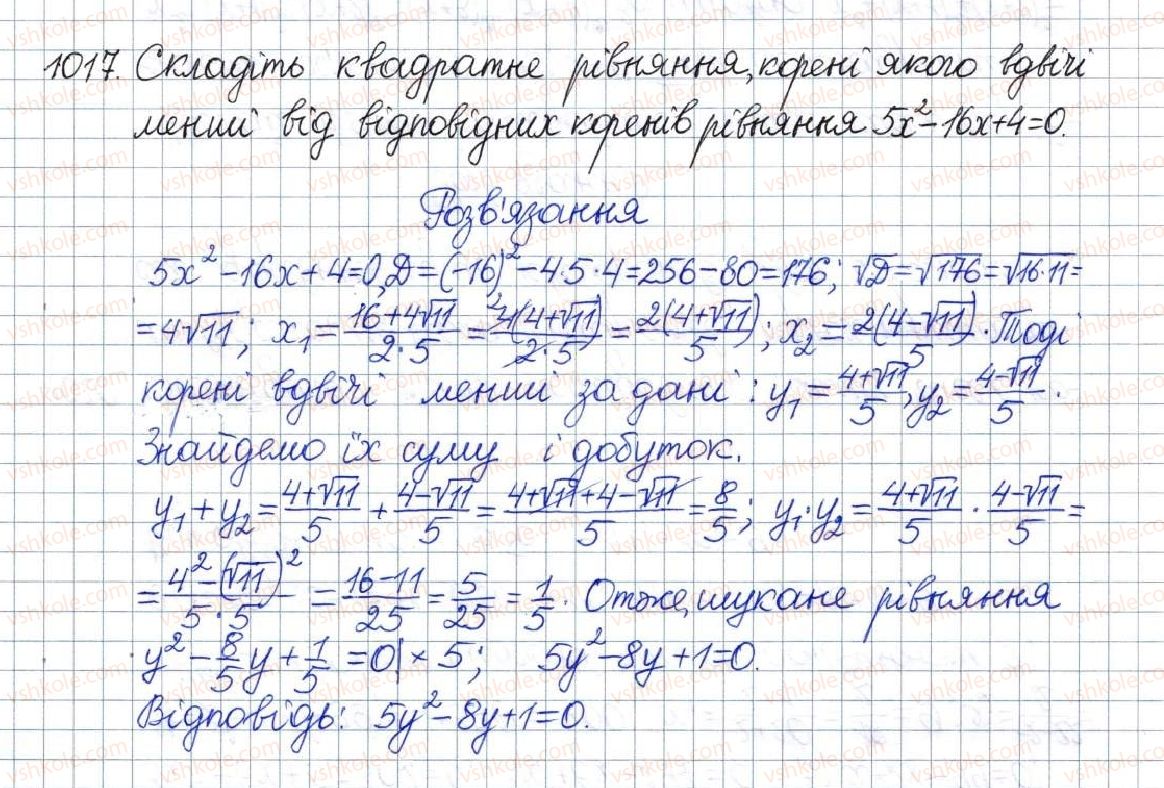 1017. Складіть квадратне рівняння, корені якого вдвічі
менші від відповідних коренів рівняння 5x² - 16x + 4 = 0.
Розв'язання
5x² - 16x + 4 = 0, D = (-16)² - 4·5·4 = 256 - 80 = 176; √D = √176 = √16·11 =
= 4√11; x₁ = (16 + 4√11)/(2·5) = ²4(4 + √11)/(2·5) = 2(4 + √11)/5; x₂ = 2(4 - √11)/5. Тоді
корені вдвічі менші за дані: y₁ = (4 + √11)/5, y₂ = (4 - √11)/5.
Знайдемо їх суму і добуток.
y₁ + y₂ = (4 + √11)/5 + (4 - √11)/5 = (4 + √11 + 4 - √11)/5 = 8/5; y₁·y₂ = (4 + √11)/5 · (4 - √11)/5 =
= (4² - (√11)²)/(5·5) = (16 - 11)/25 = 5/25 = 1/5. Отже, шукане рівняння
y² - 8/5 y + 1/5 = 0 | × 5; 5y² - 8y + 1 = 0.
Відповідь: 5y² - 8y + 1 = 0.